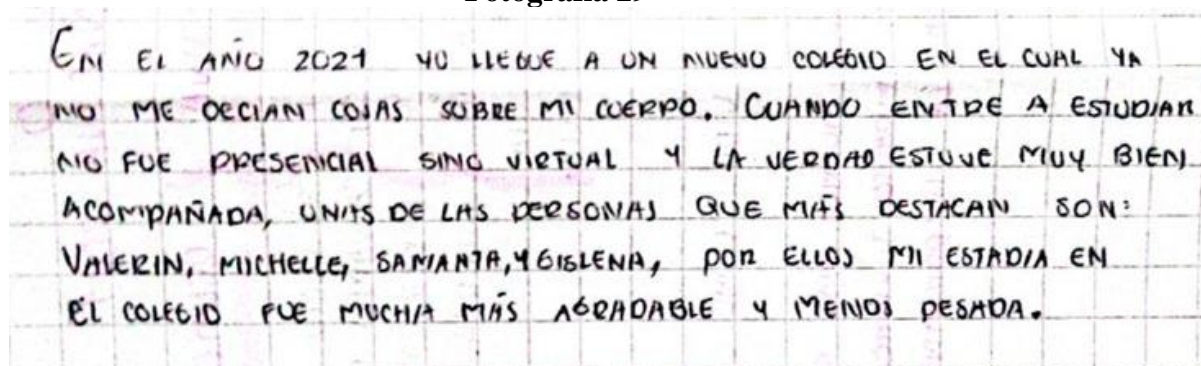 EN EL AÑO 2021 YO LLEGUE A UN NUEVO COLEGIO EN EL CUAL YA
NO ME DECIAN COSAS SOBRE MI CUERPO. CUANDO ENTRE A ESTUDIAR
NO FUE PRESENCIAL SINO VIRTUAL Y LA VERDAD ESTUVE MUY BIEN
ACOMPAÑADA, UNAS DE LAS PERSONAS QUE MÁS DESTACAN SON:
VALERIN, MICHELLE, SAMANTA, Y GISLENA, POR ELLOS MI ESTADIA EN
EL COLEGIO FUE MUCHA MÁS AGRADABLE Y MENOS PESADA.